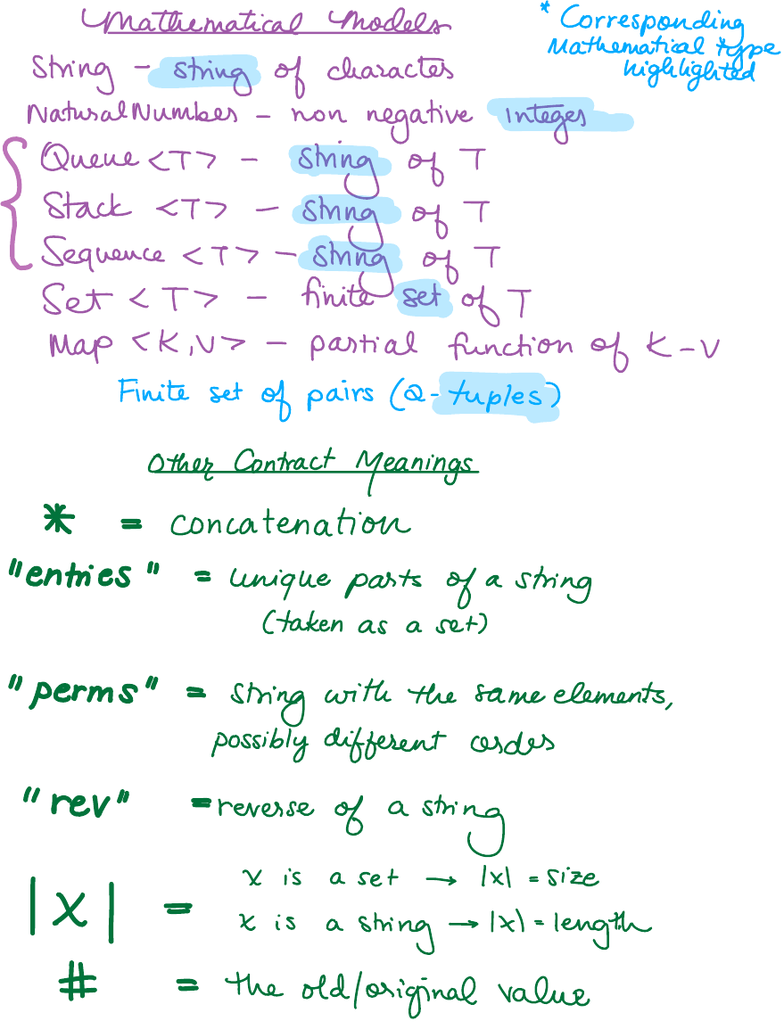 Mathematical Models
* Corresponding
Mathematical type
highlighted
String - string of characters
Natural Number - non negative integers
Queue <T> - string of T
Stack <T> - string of T
Sequence <T> - string of T
Set <T> - finite set of T
Map <K,V> - partial function of K-V
Finite set of pairs (2-tuples)
Other Contract Meanings
* = concatenation
"entries" = unique parts of a string
(taken as a set)
"perms" = string with the same elements,
possibly different order
"rev" = reverse of a string
|x| =
x is a set → |x| = size
x is a string → |x| = length
# = the old/original value